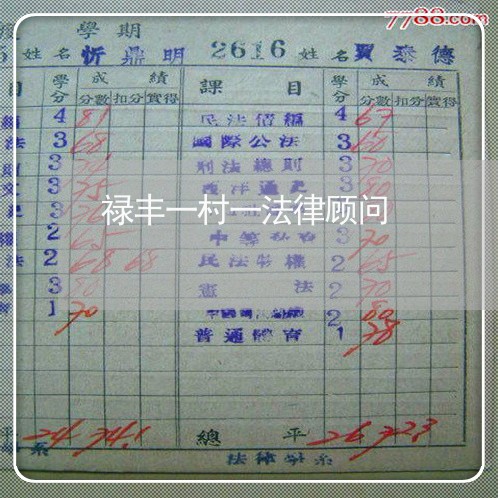 7788.com
學期
姓名 忻鼎明 2616 姓名 賈泰德
目 學分 成績 課目 學分 成績
分數 扣分 實得 分數 扣分 實得
4 81 民法債編 4 67
法 3 68 國際公法 3 60
3 刑法總則 3 70
3 75 西洋通史 3 80
3
禄丰一村一法律顾问
2 65 3 70
法 2 68 68 民法物權 2 65
3 80 憲法 2 70
1 70 2 80
普通體育 1 78
平 24 74.1 總平 26 72.3
系 法律學系